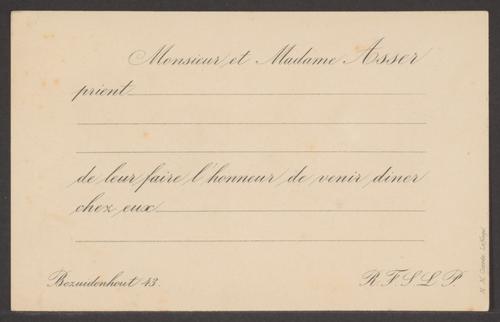 Monsieur et Madame Asser
prient
de leur faire l'honneur de venir diner
chez eux
Bezuidenhout 43.
R. F. S. L. P